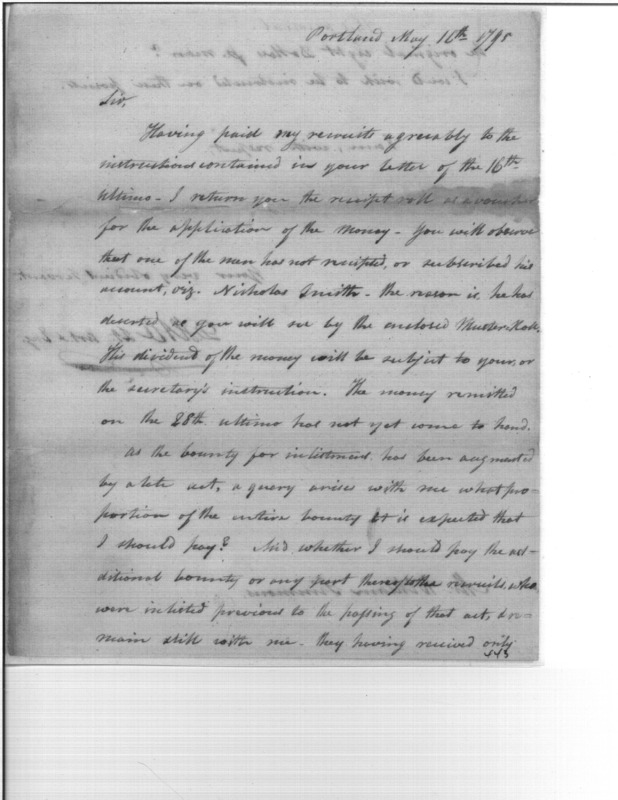 Portland May 16th 1798
Sir,
Having paid my recruits agreeably to the
instructions contained in your letter of the 16th
ultimo - I return you the receipt roll as a voucher
for the application of the money - You will observe
that one of the men has not receipted, or subscribed his
account, viz. Nicholas Smith - the reason is, he has
deserted as you will see by the enclosed Muster-Roll.
His dividend of the money will be subject to your, or
the secretary's instruction. The money remitted
on the 28th ultimo has not yet come to hand.
As the bounty for inlistment has been augmented
by a late act, a query arises with me what pro=
portion of the entire bounty it is expected that
I should pay? And whether I should pay the ad=
ditional bounty or any part thereof to the recruits, who
were inlisted previous to the passing of that act, & re=
main still with me - they having received only
443